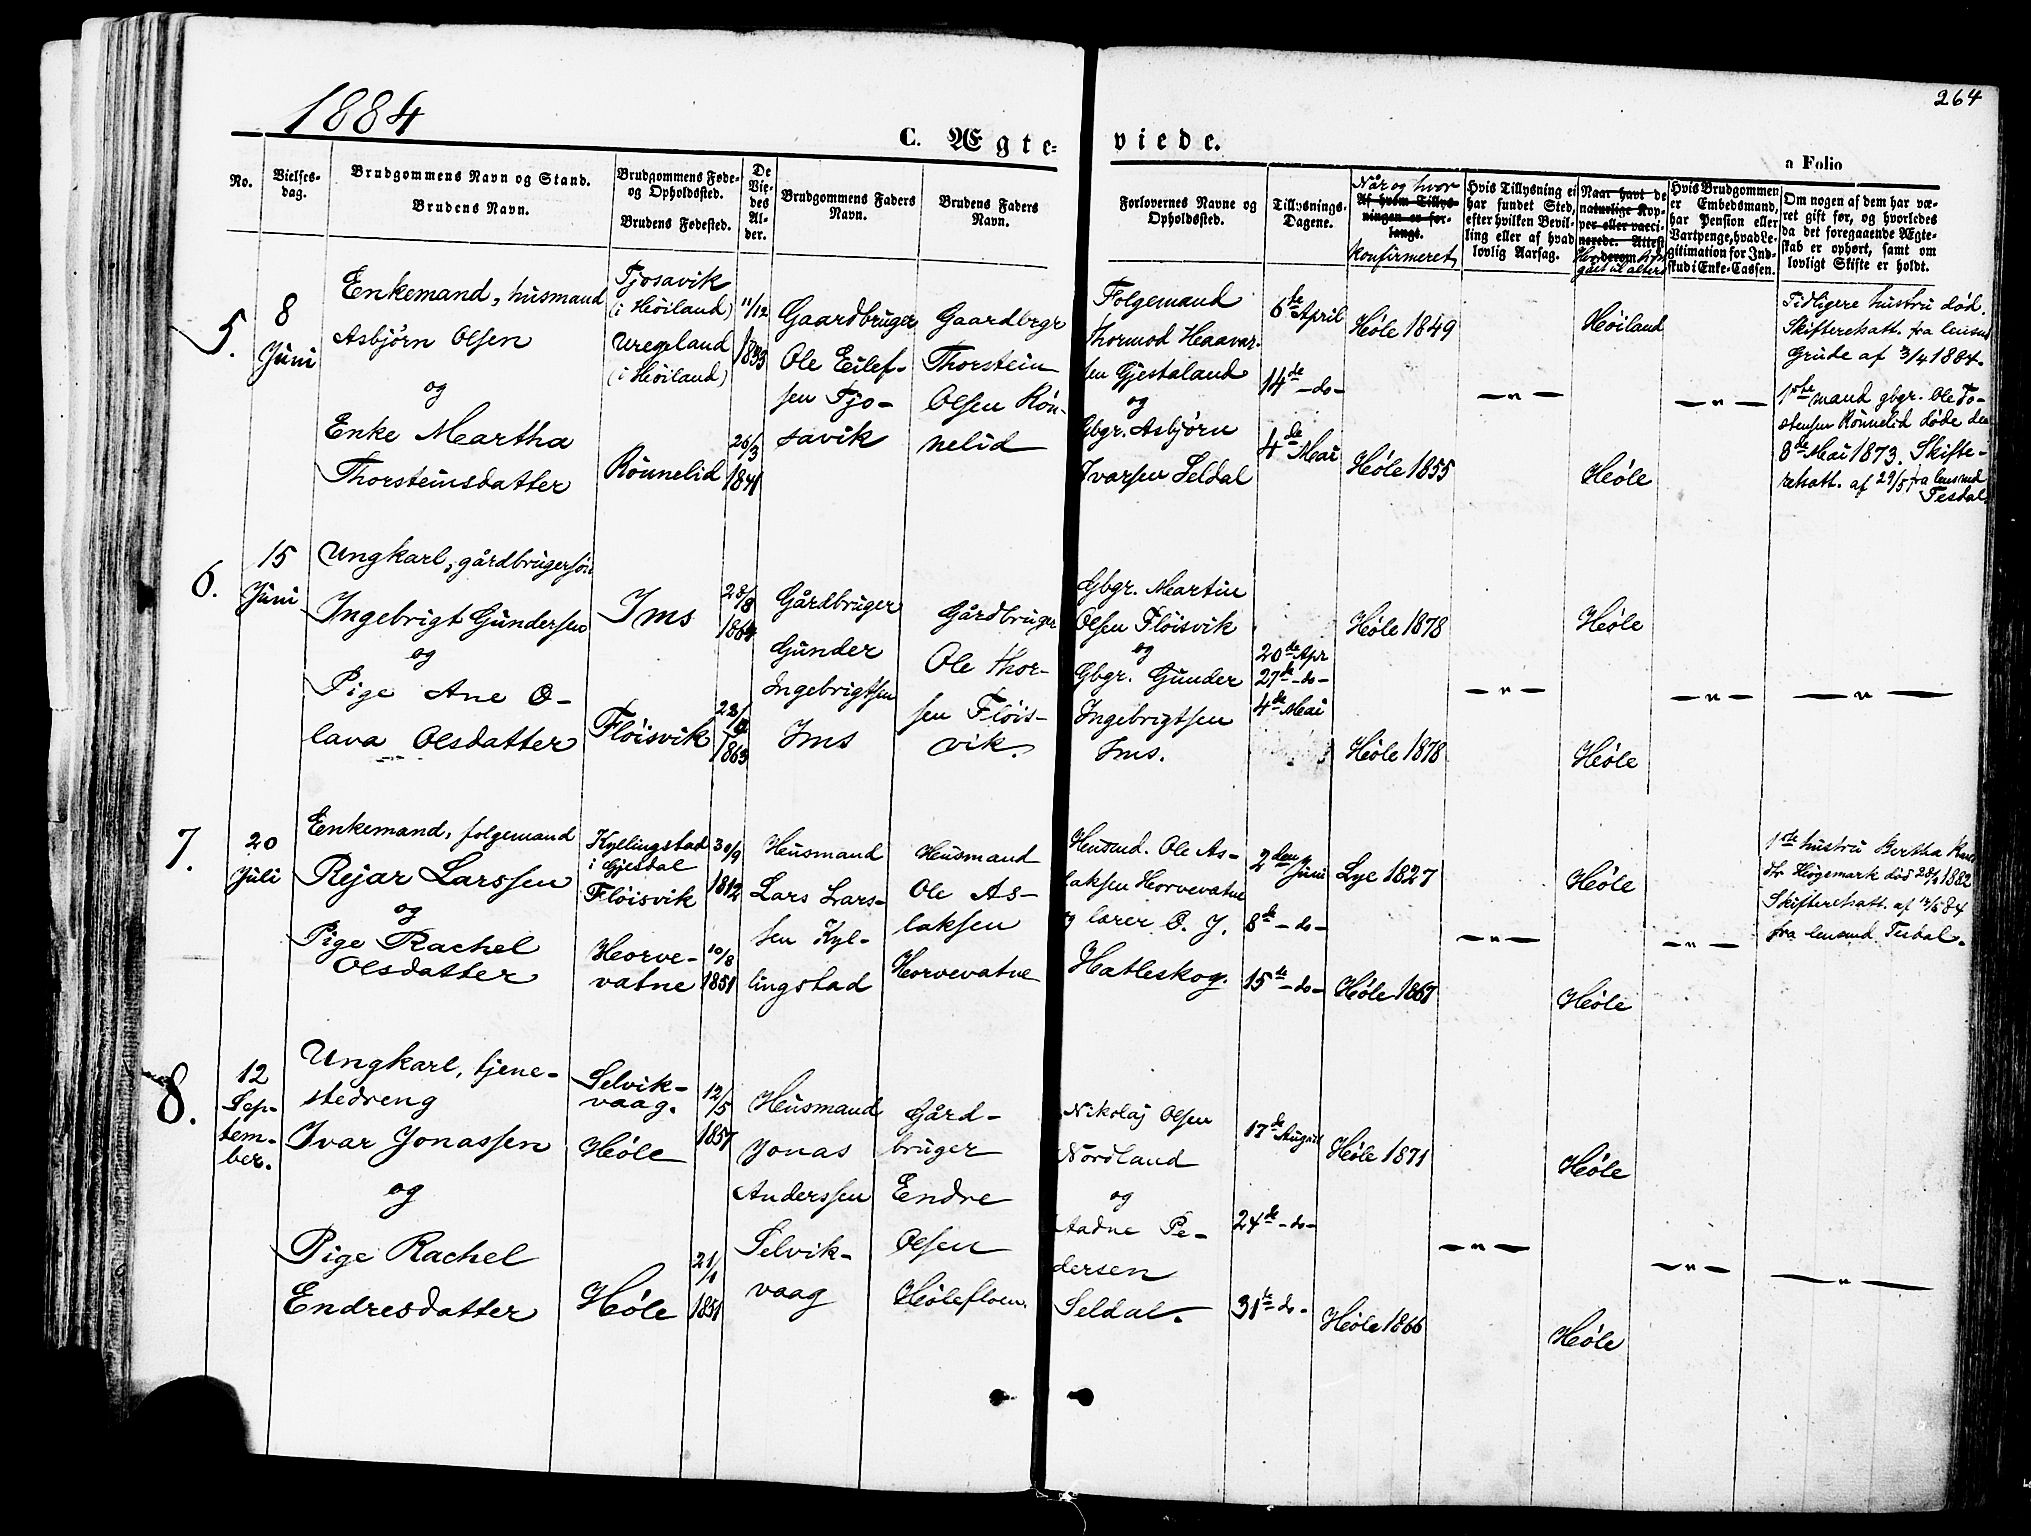 1884
264
C. Ægte-
viede.
a Folio
No.
Vielses-
dag.
Brudgommens Navn og Stand.
Brudens Navn.
Brudgommens Føde-
og Opholdssted.
Brudens Fødested.
De
Vie-
des
Al-
der.
Brudgommens Faders
Navn.
Brudens Faders
Navn.
Forlovernes Navne og
Opholdssted.
Tillysnings-
Dagene.
Når og hvor
Af hvem Tillys-
ningen er for-
langt.
konfirmeret.
Hvis Tillysning ei
har fundet Sted,
efter hvilken Bevil-
ling eller af hvad
lovlig Aarsag.
Naar havt de
naturlige Kop-
per eller vacci-
nerede. Attest
derom
Hvis Brudgommen
er Embedsmand,
har Pension eller
Vartpenge, hvad Le-
gitimation for Ind-
skud i Enke-Cassen.
Om nogen af dem har væ-
ret gift før, og hvorledes
da det foregaaende Ægte-
skab er ophørt, samt om
lovligt Skifte er holdt.
5.
8
Juni
Enkemand, husmand
Asbjørn Olsen
og
Enke Martha
Thorsteinsdatter
Tjosavik
(i Høiland)
Uregeland
(i Høiland)
Rönnelid
11/12
1833
26/3
1841
Gaardbruger
Ole Eilef-
sen Tjo-
savik
Gaardbrgr
Thorstein
Olsen Rön-
nelid
Folgemand
Thormod Haavar-
sen Gjestaland
og
Gbgr. Asbjørn
Ivarsen Seldal
6te April
14de -do-
4de Mai
Høle 1849
Høle 1855
- " -
Høiland
Høle
- " -
Tidligere hustru død.
Skifteretsatt. fra lensmd
Grude af 3/4 1884.
1ste mand gbgr. Ole To-
stensen Rönnelid døde den
8de Mai 1873. Skifte-
retsatt. af 29/5 fra lensmd
Tesdal
6.
15
Juni
Ungkarl, gårdbrugersøn
Ingebrigt Gundersen
og
Pige Ane O-
lava Olsdatter
Ims
Fløisvik
28/8
1864
1863
Gårdbruger
Gunder
Ingebrigtsen
Ims
Gårdbruger
Ole Thor-
sen Fløis-
vik.
Gbgr. Martin
Olsen Fløisvik
og
Gbgr. Gunder
Ingebrigtsen
Ims.
20de Apr
27de -do-
4de Mai
Høle 1878
Høle 1878
- " -
Høle
Høle
- " -
- " -
7.
20
Juli
Enkemand, folgemand
Rejar Larssen
og
Pige Rachel
Olsdatter
Kyllingstad
i Gjesdal
Fløisvik
Horve-
vatne
30/9
1812
10/8
1851
Husmand
Lars Lars-
sen Kyl-
lingstad
Husmand
Ole As-
laksen
Horvevatne
Husmd. Ole As-
laksen Horvevatne
og lærer O. J.
Hatleskog.
2den Juni
8de -do-
15de -do-
Lye 1827
Høle 1867
- " -
Høle
Høle
- " -
1ste hustru Bertha
Høgemark død 28/ 1882
Skifteretsatt. af 84
fra lensmd Tesdal.
8.
12
Sep-
tem-
ber.
Ungkarl, tjene-
stedreng
Ivar Jonassen
og
Pige Rachel
Endresdatter
Selvik-
vaag.
Høle
Høle
12/5
1857
21/1
1851
Husmand
Jonas
Anderssen
Selvik-
vaag
Gård-
bruger
Endre
Olsen
Hølefloen.
Nikolaj Olsen
Nordland
og
Aadne Pe-
dersen
Seldal.
17de August
24de -do-
31te -do-
Høle 1871
Høle 1866
- " -
Høle
Høle
- " -
- " -